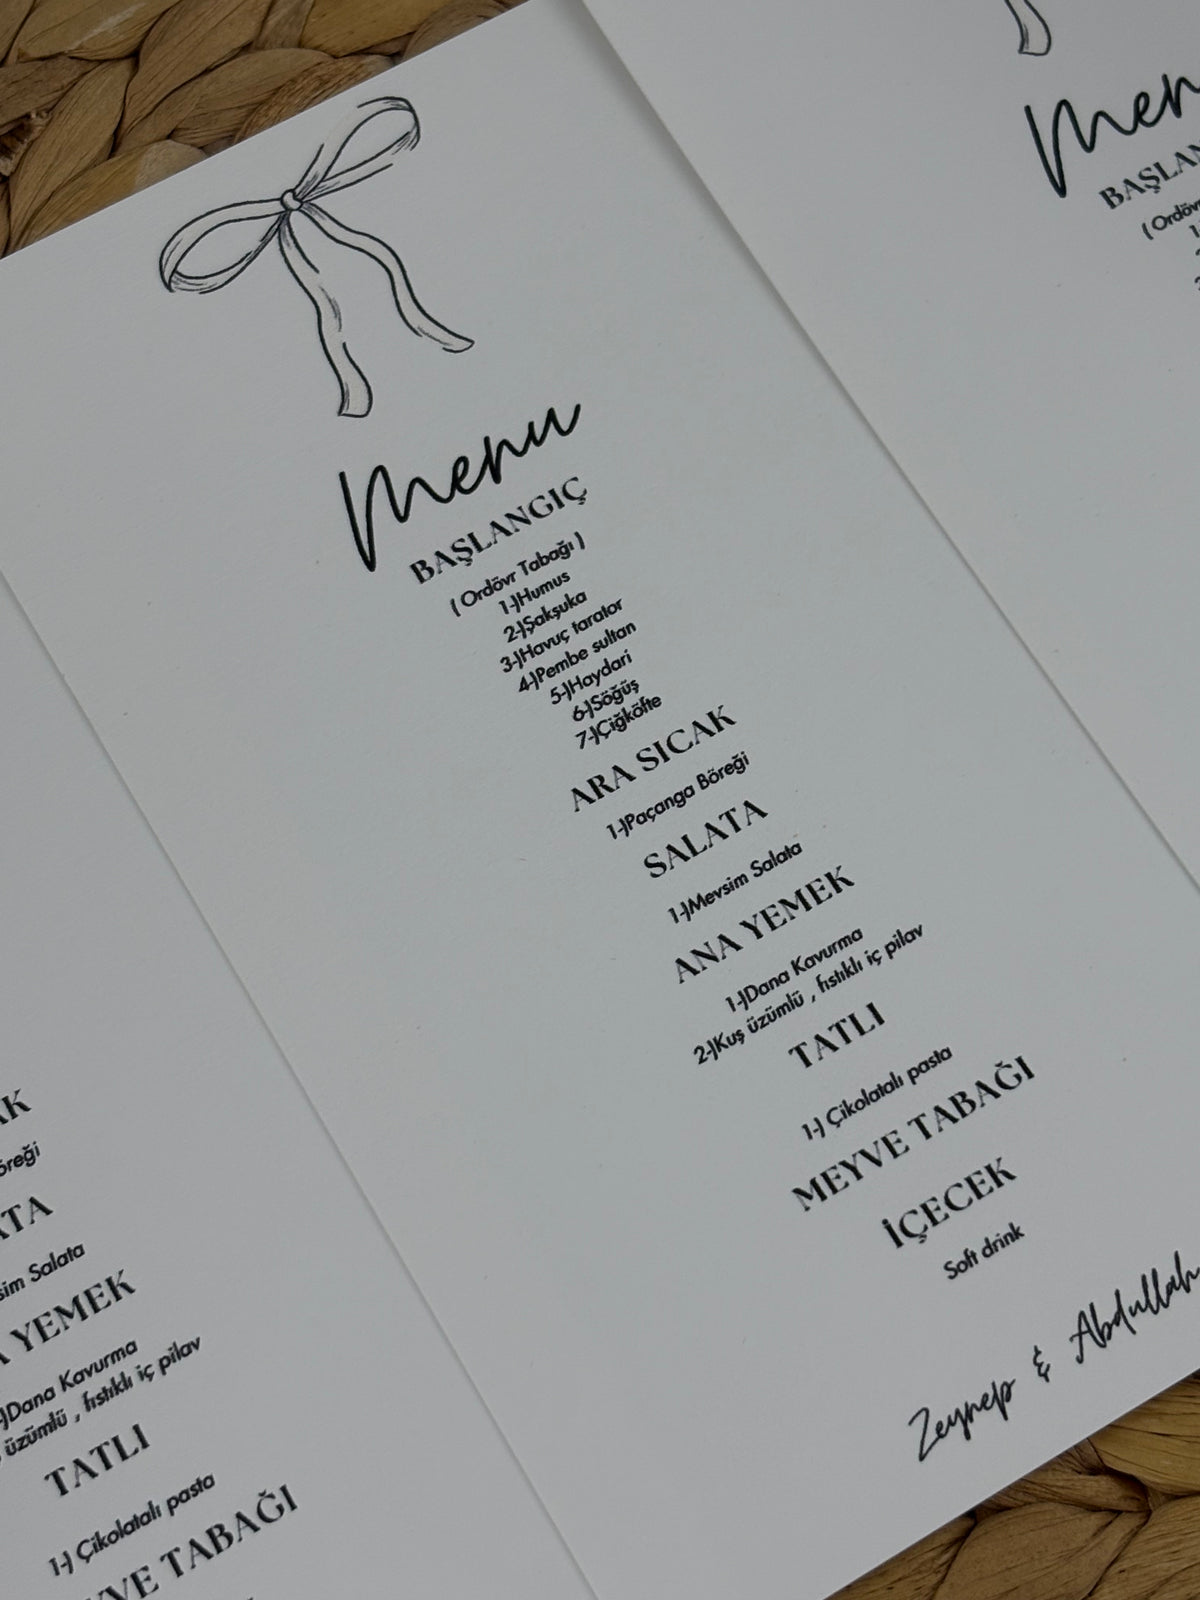 Menu
BAŞLANGIÇ
( Ordövr Tabağı )
1-)Humus
2-)Şakşuka
3-)Havuç tarator
4-)Pembe sultan
5-)Haydari
6-)Söğüş
7-)Çiğköfte
ARA SICAK
1-)Paçanga Böreği
SALATA
1-)Mevsim Salata
ANA YEMEK
1-)Dana Kavurma
2-)Kuş üzümlü , fıstıklı iç pilav
TATLI
1-) Çikolatalı pasta
MEYVE TABAĞI
İÇECEK
Soft drink
Zeynep & Abdullah
Salata
YEMEK
Dana Kavurma
üzümlü , fıstıklı iç pilav
TATLI
1-) Çikolatalı pasta
TABAĞI